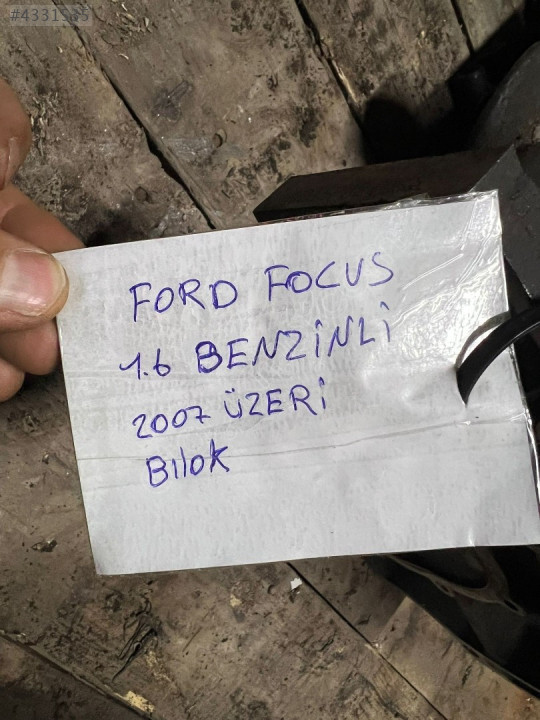 #4331535
FORD FOCUS
1.6 BENZİNLİ
2007 ÜZERİ
Bılok